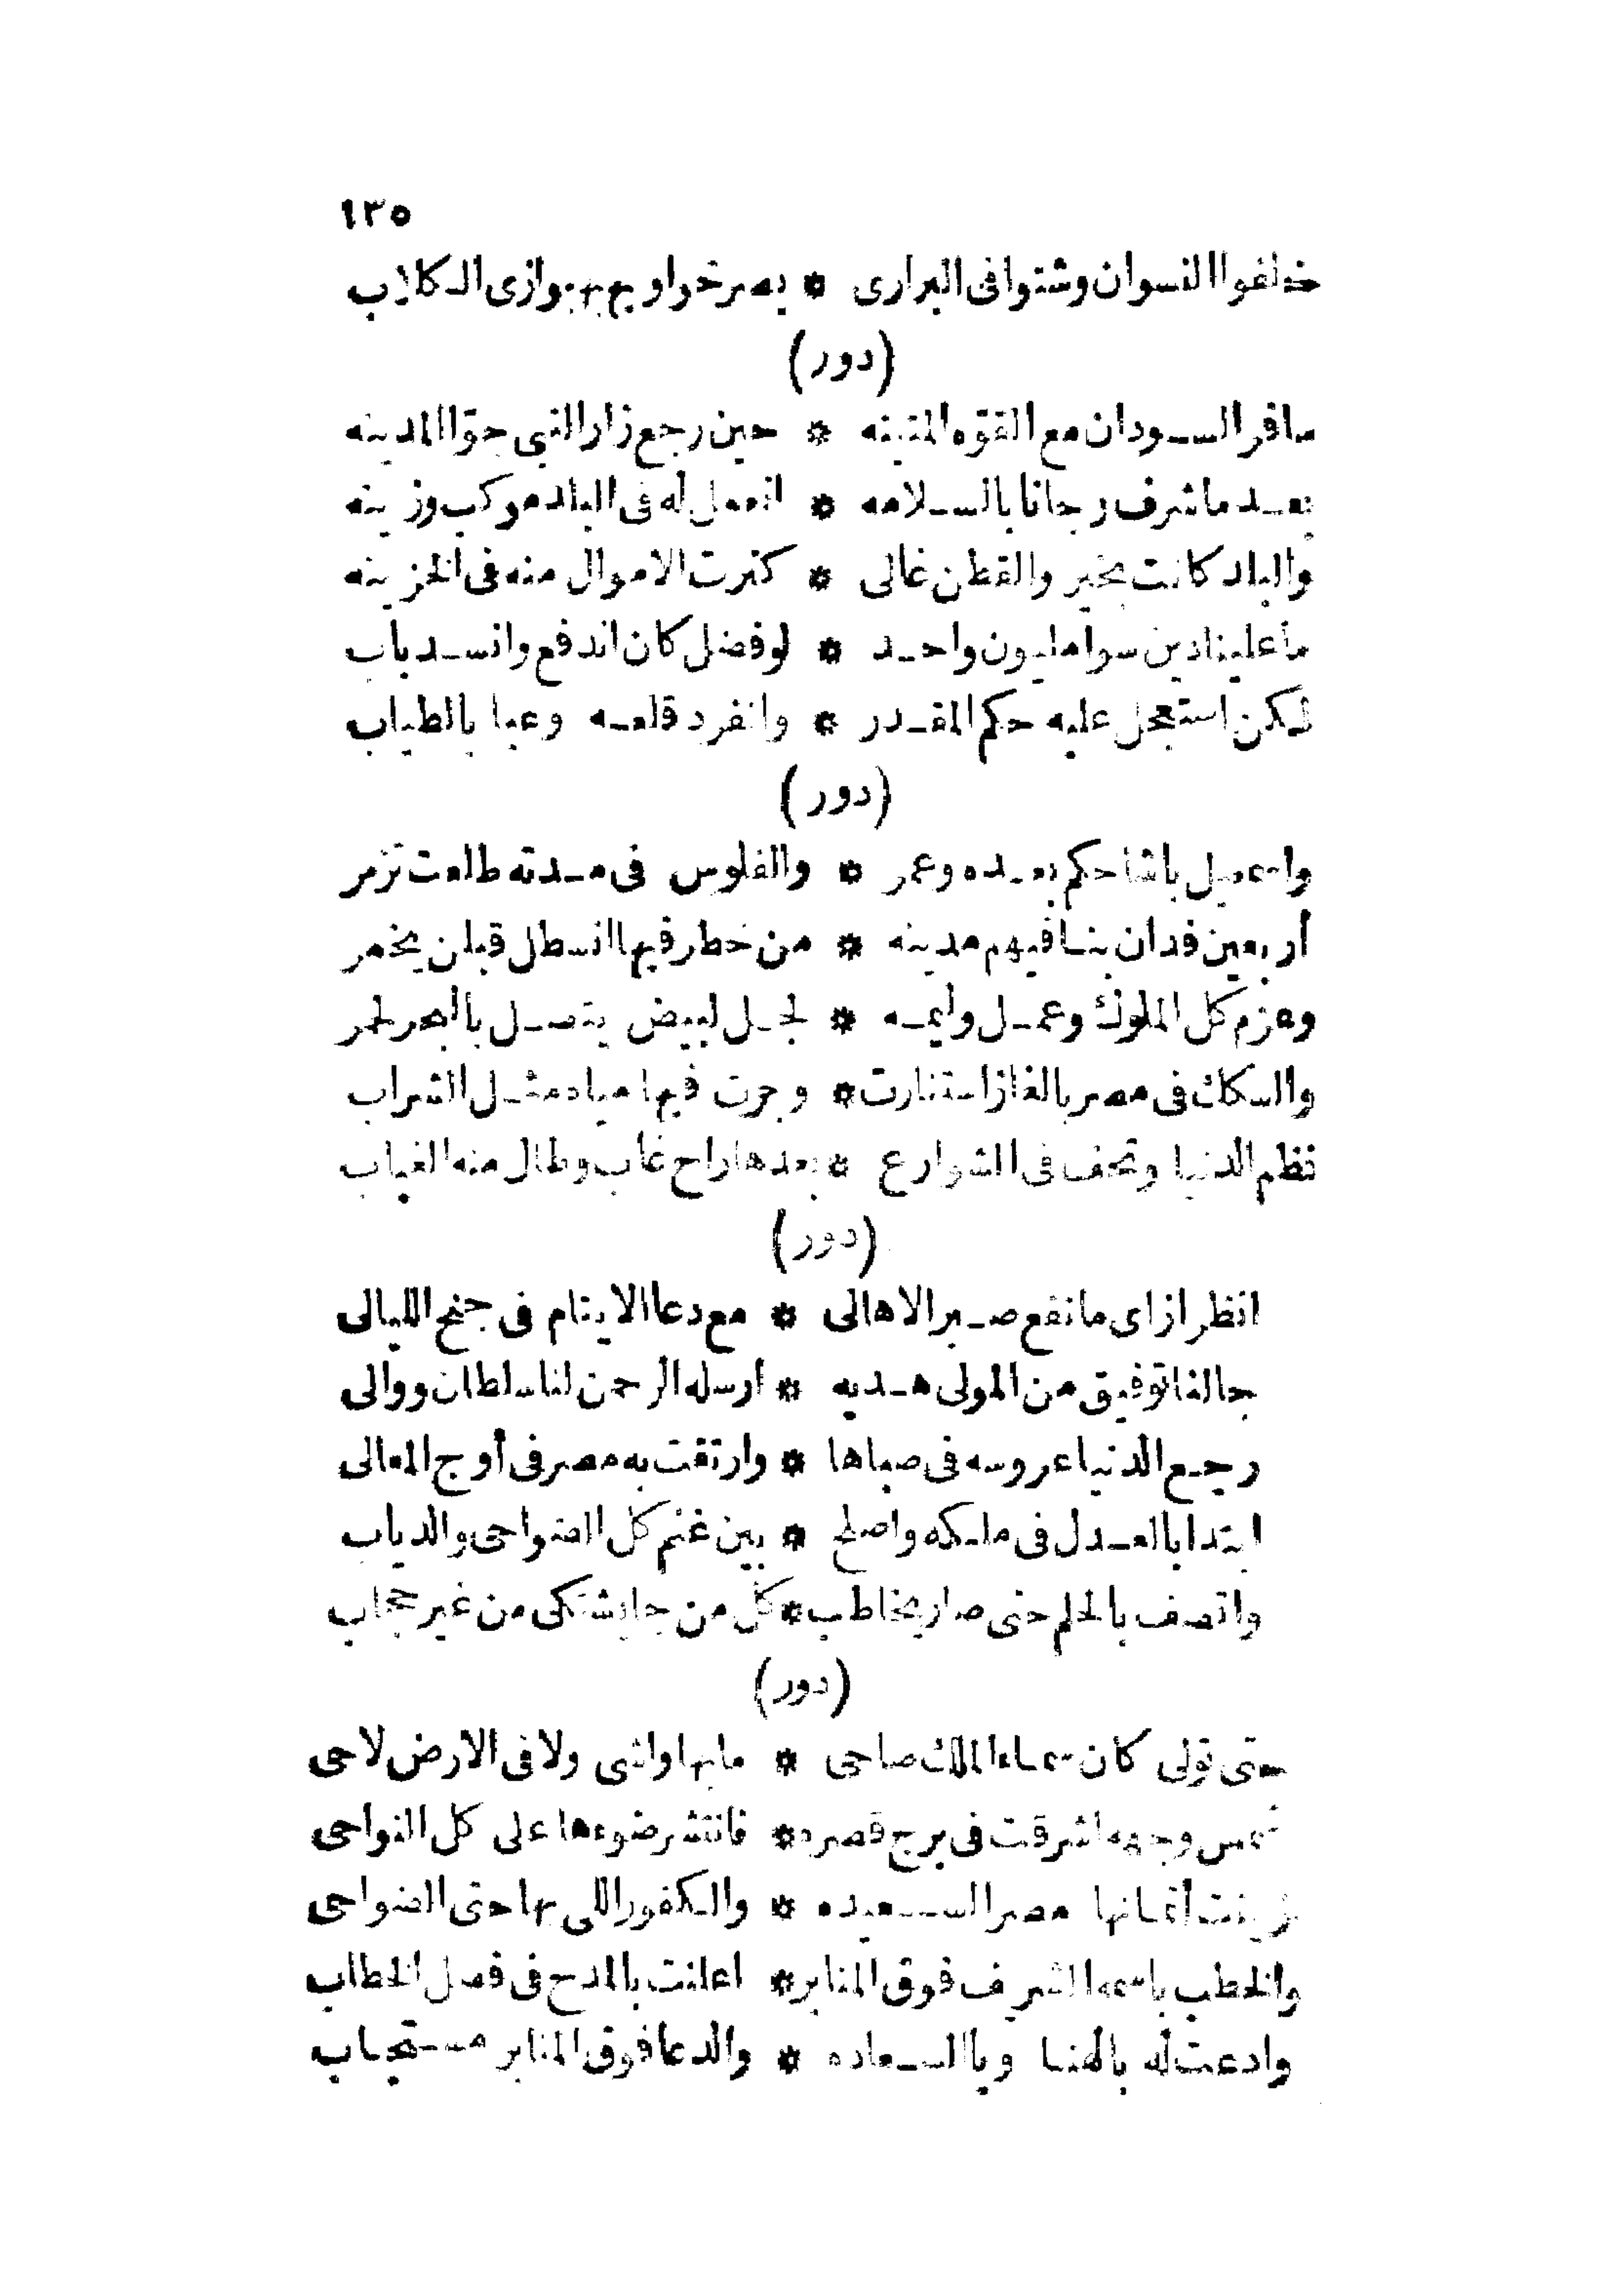 ١٣٥
خلفوا النسوان وشتوا فى البرارى * يصرخوا وبهم يوازى الكلاب
(دور)
سافر السودان مع القوه المتينه * حين رجع زار النبى جوّا المدينه
بعد ما شرف رجانا بالسلامه * انعمل له فى البلد موكب وزينه
والبلد كانت بخير والقطن غالى * كترت الاموال منه فى الخزينه
ما علينا دين سوا مليون واحد * لو فضل كان اندفع وانسد باب
لكن استعجل عليه حكم المقدر * وانفرد قلعه وعبا بالطياب
(دور)
واسمعيل باشا حكم بعده وعمر * والفلوس فى مدته طلعت تزمر
أربعين فدان بنا فيهم مدينه * من خطر فيها انسطل قبلن يخمر
وعزم كل الملوك وعمل وليمه * لجل لبيض يتصل بالبحر لحمر
والسكك فى مصر بالغاز استنارت * وجرت فيها مياه مثل الشراب
نظم الدنيا وتحف فى الشوارع * بعدها راح غاب وطال منه الغياب
(دور)
انظر ازاى ما نفع صبر الاهالى * مع دعا الايتام فى جنح الليالى
جا لنا توفيق من المولى هديه * ارسله الرحمن لنا سلطان ووالى
رجع الدنيا عروسه فى صباها * وارتقت به مصر فى أوج المعالى
ابتدا بالعدل فى ملكه واصلح * بين غنم كل الضواحى والدياب
واتصف بالحلم حتى صار يخاطب * كل من جا يشتكى من غير حجاب
(دور)
حتى تولى كان سماء الملك صاحى * ما بها واشى ولا فى الارض لاحى
شمس وجهه اشرقت فى برج قصره * فانتشر ضوءها على كل النواحى
زينت أتمانها مصر السعيده * والكفور اللى بها حتى الضواحى
والخطب باسمه الشريف فوق المنابر * اعلنت بالمدح فى فصل الخطاب
وادعت له بالهنا وبالسعاده * والدعا فوق المنابر مستجاب